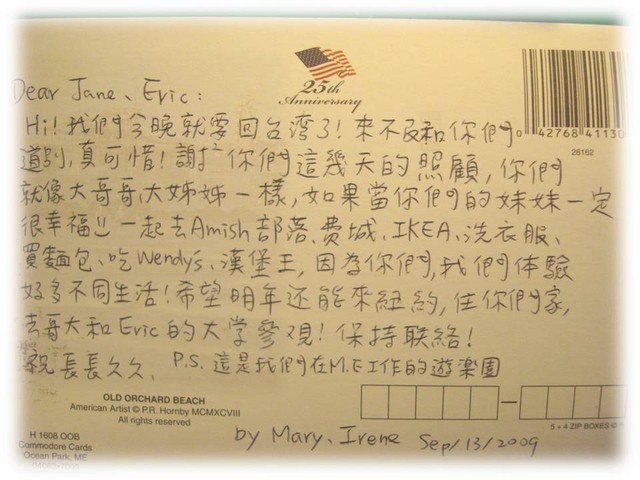 25th
Anniversary
Dear Jane、Eric:
Hi!我們今晚就要回台湾了!來不及和你們
道別,真可惜!謝謝你們這幾天的照顧,你們
就像大哥哥、大姊姊一樣,如果當你們的妹妹一定
很幸福!! 一起去Amish部落、費城、IKEA、洗衣服、
買麵包、吃Wendy's、漢堡王,因為你們,我們体驗
好多不同生活!希望明年还能來紐約,住你們家,
去哥大和Eric的大学參观!保持联絡!
祝長長久久. P.S. 這是我們在M.E工作的遊楽園
0 42768 41130
28162
OLD ORCHARD BEACH
American Artist © P.R. Hornby MCMXCVIII
All rights reserved
H 1608 OOB
Commodore Cards
Ocean Park, ME
5 + 4 ZIP BOXES ©
by Mary、Irene Sep/13/2009